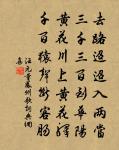 去路迢迢入兩當
三千三百到華陽
黃花川上黃花驛
千百猿聲斷客腸
汪元量鳳州歌